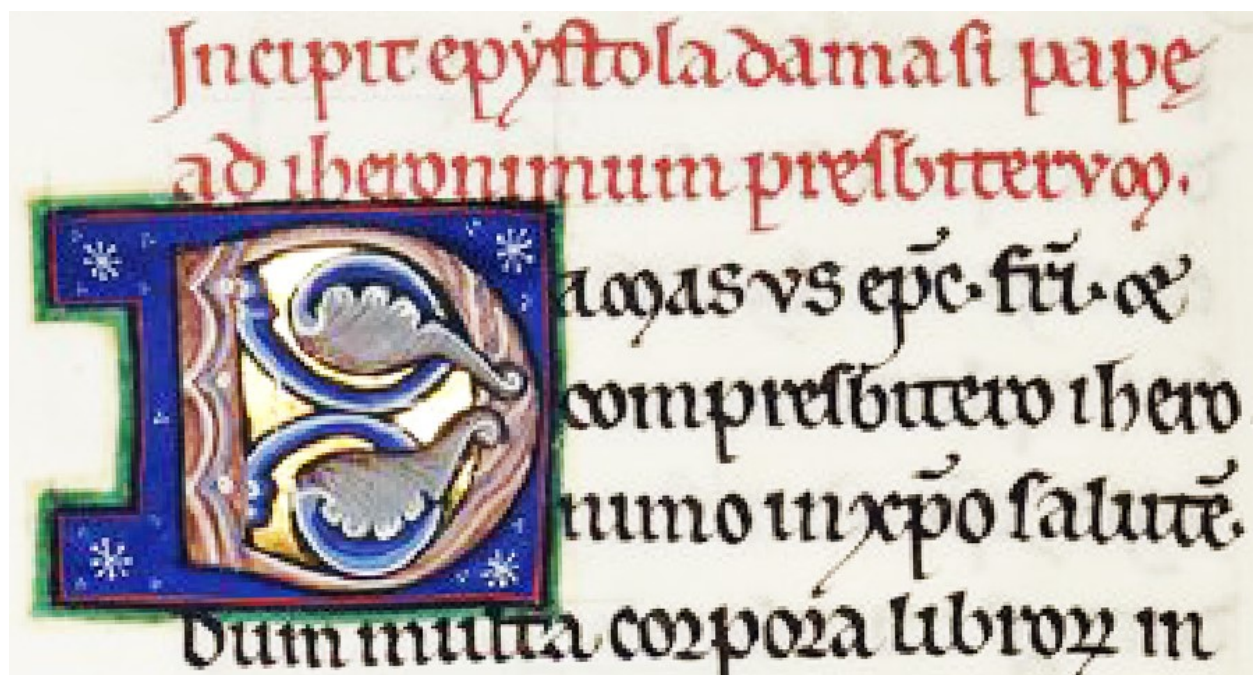 Incipit epyſtola damaſi papę
ad iheronimum preſbiterum.
Damasus ep̅c · fr̅i · &
compreſbitero ihero
nimo in xp̅o ſalutē.
Dum multa corpora libroꝝ in